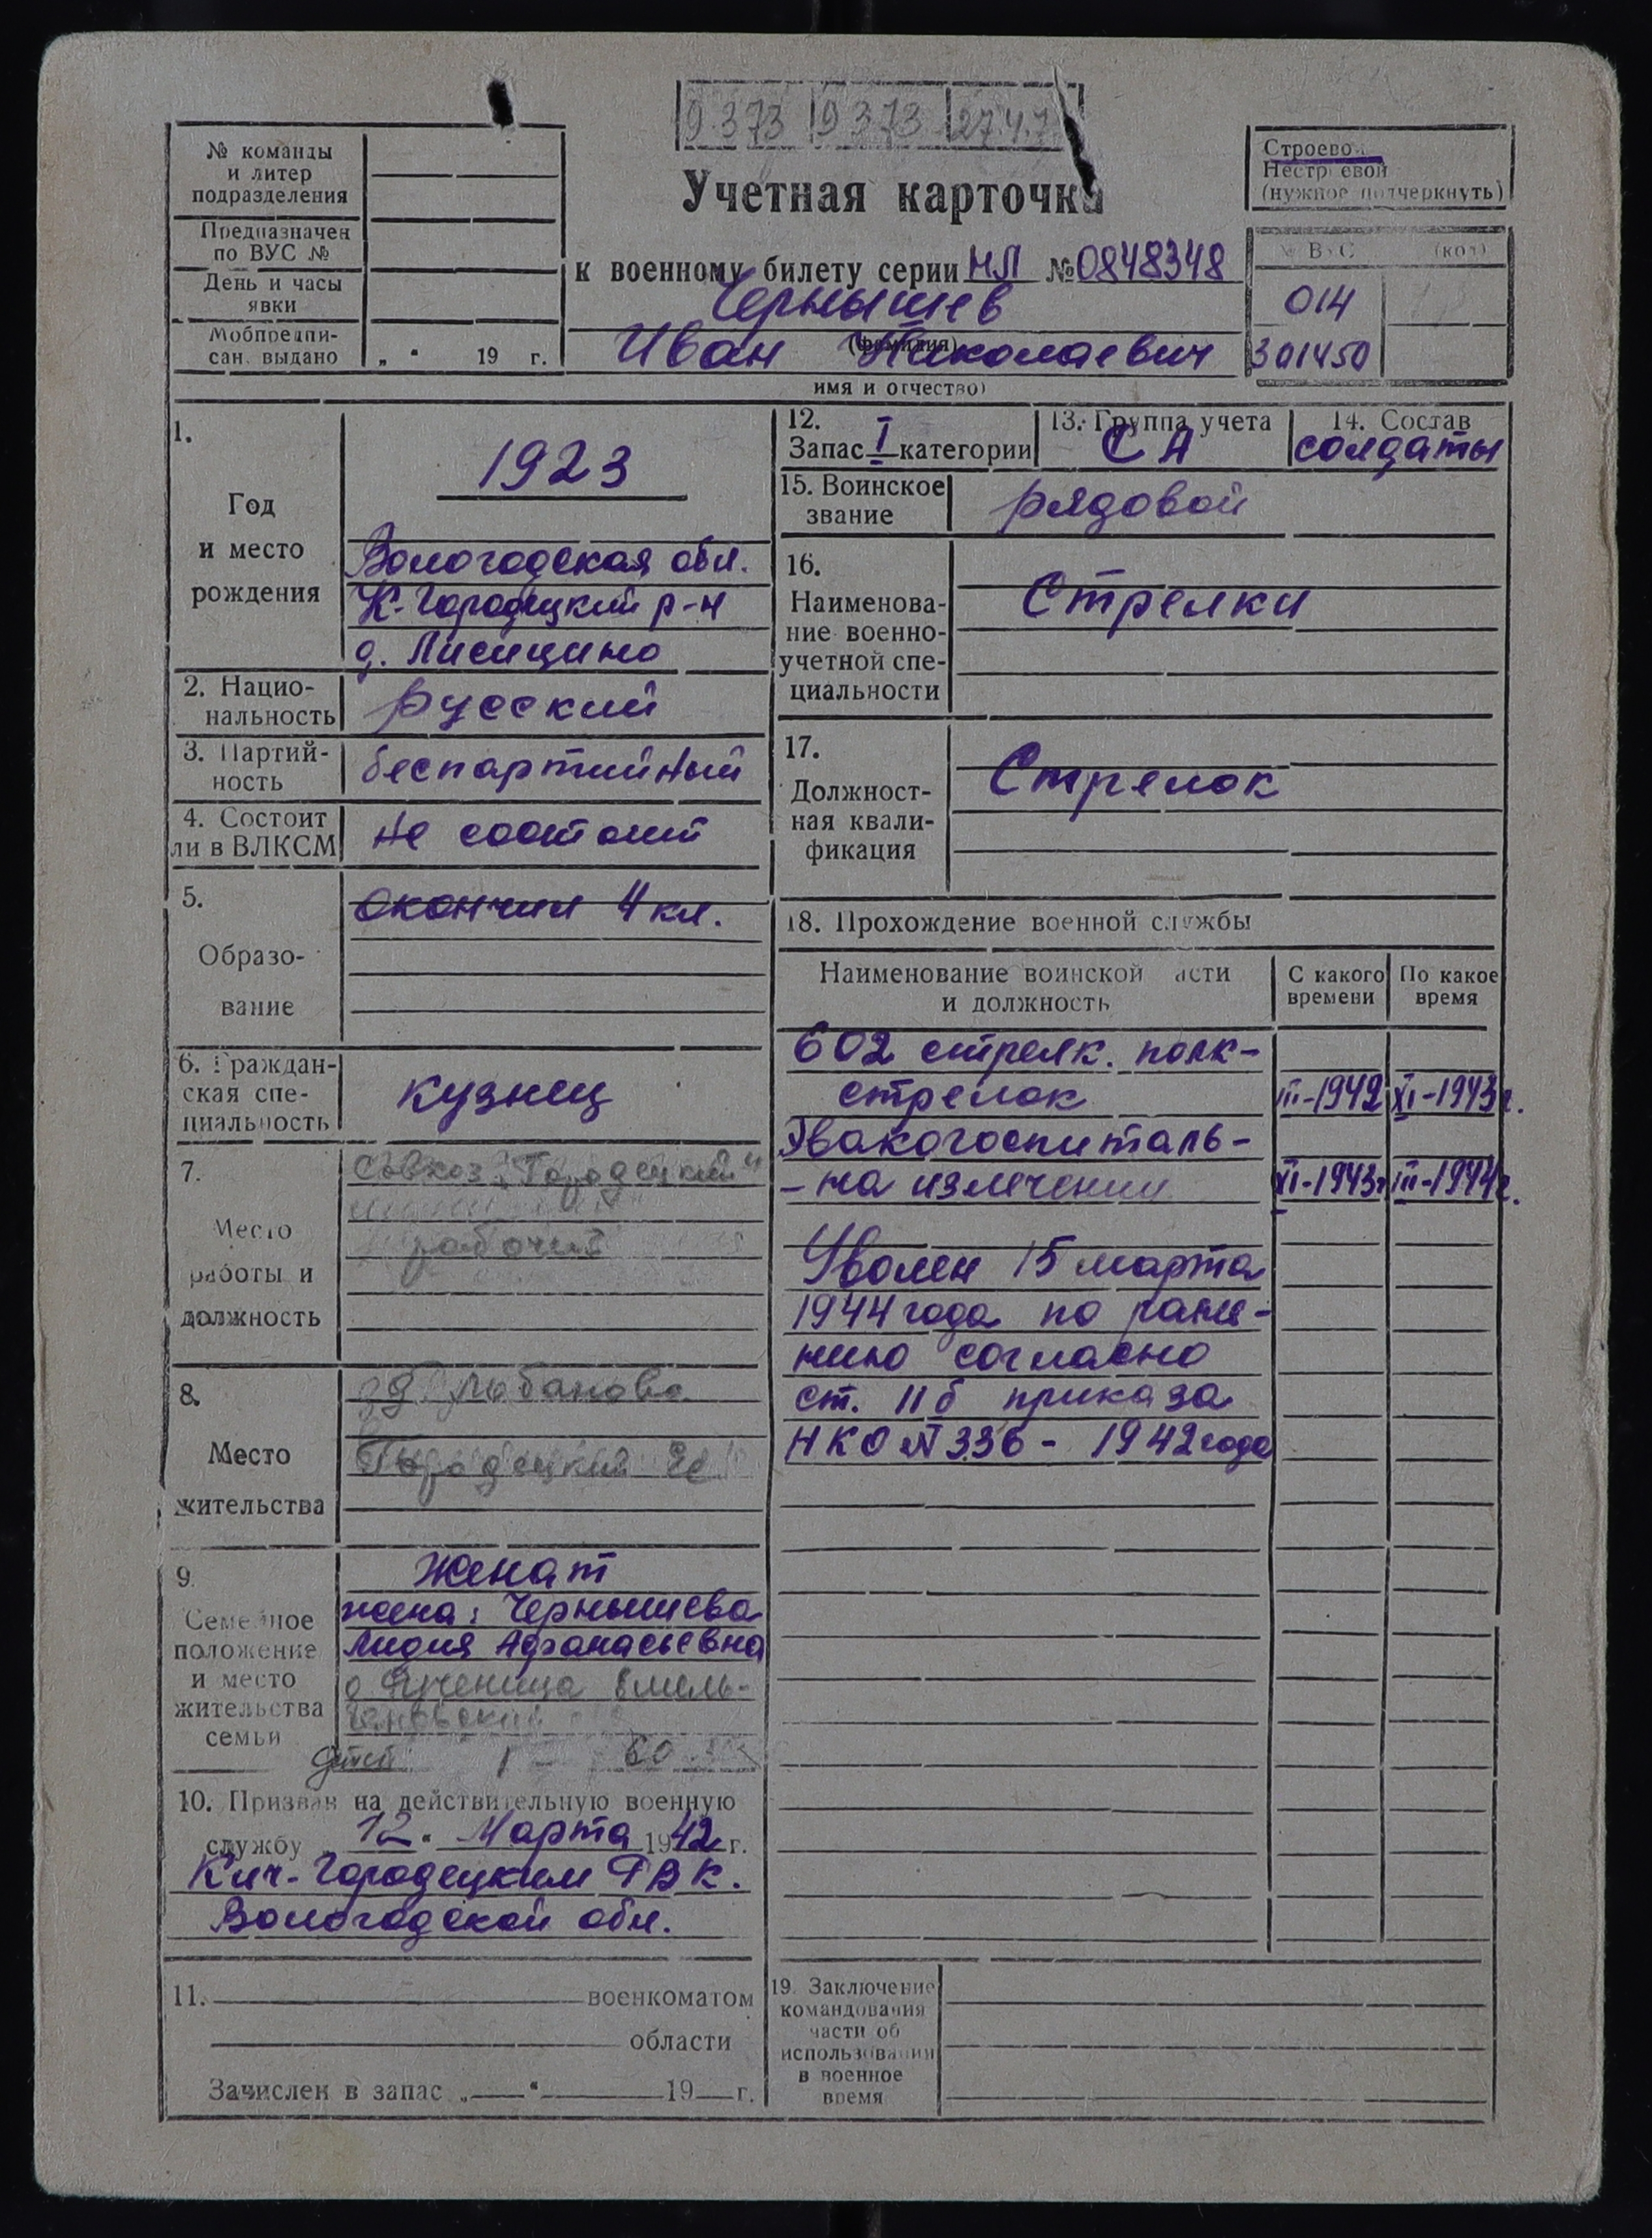 9.373 19373 27.4.7
№ команды
и литер
подразделения
Предназначен
по ВУС №
День и часы
явки
Мобпредпи-
сан. выдано „ “ 19 г.
Учетная карточка
к военному билету серии НЛ № 0848348
Чернышев
(фамилия)
Иван Николаевич
имя и отчество)
Строевой
Нестроевой
(нужное подчеркнуть)
№ ВУС (код)
014
301450
1.
Год
и место
рождения
1923
Вологодская обл.
К-Городецкий р-н
д. Лисицино
2. Нацио-
нальность
русский
3. Партий-
ность
беспартийный
4. Состоит
ли в ВЛКСМ
не состоит
5.
Образо-
вание
окончил 4 кл.
6. Граждан-
ская спе-
циальность
кузнец
7.
Место
работы и
должность
Совхоз "Городецкий"
рабочий
8.
Место
жительства
д. Лобаново
Городецкий
9.
Семейное
положение
и место
жительства
семьи
Женат
жена: Чернышева
Лидия Афанасьевна
Емель-
яновский
детей 1 - 60
10. Призван на действительную военную
службу 12 Марта 1942 г.
Кич-Городецким РВК.
Вологодской обл.
11. военкоматом
области
Зачислен в запас „ “ 19 г.
12.
Запас I категории
13. Группа учета
СА
14. Состав
солдаты
15. Воинское
звание
рядовой
16.
Наименова-
ние военно-
учетной спе-
циальности
Стрелки
17.
Должност-
ная квали-
фикация
Стрелок
18. Прохождение военной службы
Наименование воинской части
и должность
С какого
времени
По какое
время
602 стрелк. полк-
стрелок III-1942 XI-1943г.
Эвакогоспиталь-
- на излечении XI-1943г III-1944г.
Уволен 15 марта
1944 года по ране-
нию согласно
ст. 11б приказа
НКО № 336 - 1942 года
19. Заключение
командования
части об
использовании
в военное
время